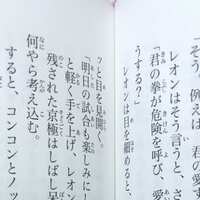 レオンはそう言うと、さ
「君の拳が危険を呼び、愛
うする？」
レオンは目を細
ッと目を見開く。
「明日の試合も楽しみにし
と軽く手を上げ、レオン
残された京極はしばし
何やら考え込む。
すると、コンコンとノッ